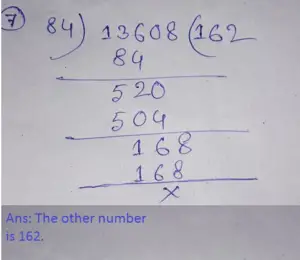 7 84) 13608 (162
84
520
504
168
168
x
Ans: The other number
is 162.